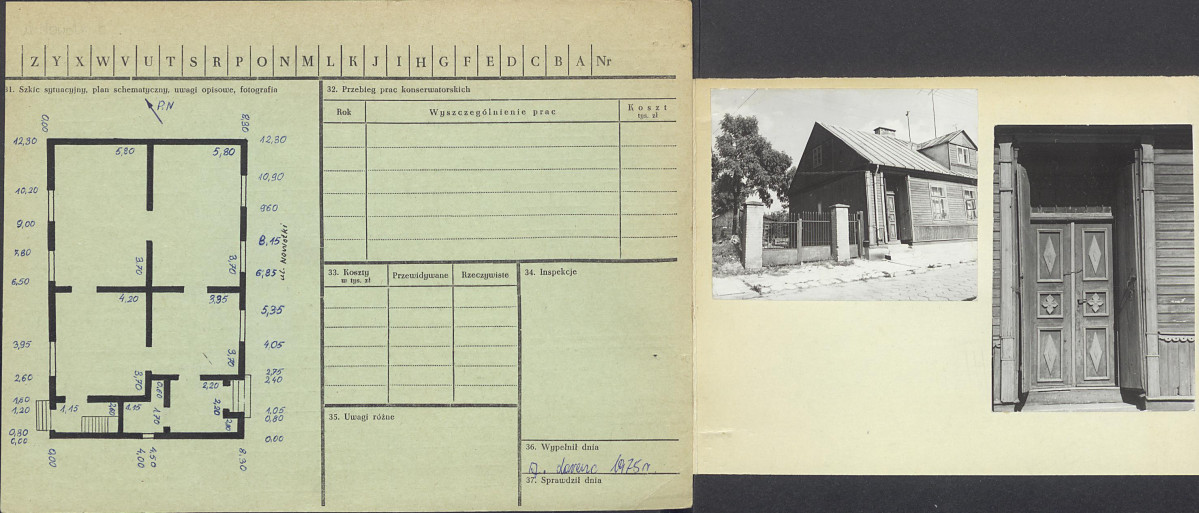 Z Y X W V U T S R P O N M L K J I H G F E D C B A Nr
31. Szkic sytuacyjny, plan schematyczny, uwagi opisowe, fotografia
P.N
0,00 8,30
12,30 5,20 5,80 12,30
10,90
10,20
9,00 9,60
7,80 3,70 3,70 8,15
ul. Nowotki
6,50 6,85
4,20 3,95 5,35
3,95 4,05
3,70 3,70
2,60 2,20 2,75
2,40
1,60
1,20 1,15 1,15 1,70 2,20 1,05
0,80
0,30
0,00 0,00
0,00 4,00 4,50 8,30
32. Przebieg prac konserwatorskich
Rok Wyszczególnienie prac Koszt
tys. zł
33. Koszty
w tys. zł Przewidywane Rzeczywiste
34. Inspekcje
35. Uwagi różne
36. Wypełnił dnia
1975 r.
37. Sprawdził dnia